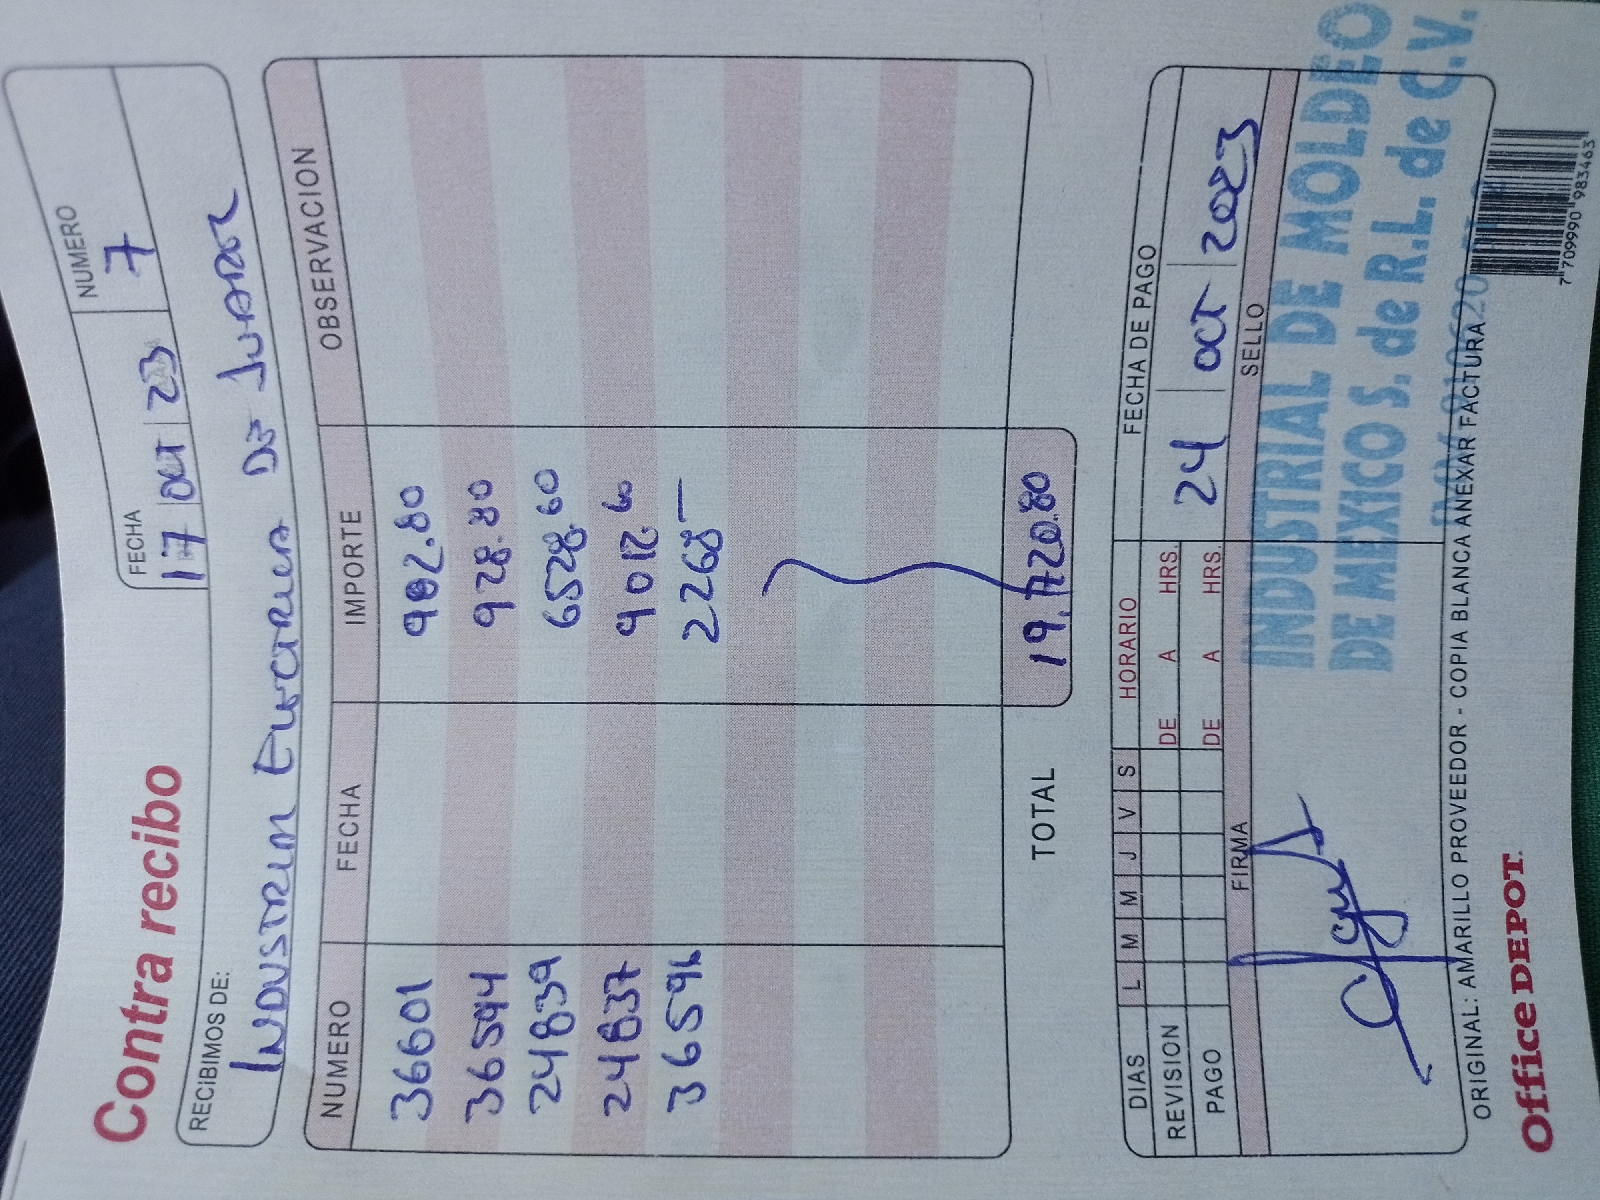 Contra recibo
FECHA NUMERO
17 OCT 23 7
RECIBIMOS DE:
INDUSTRIA ELECTRICA DE JUAREZ
NUMERO FECHA IMPORTE OBSERVACION
36601 982.80
36594 928.80
24839 6528.60
24837 9012.60
36596 2268—
TOTAL 19,720.80
DIAS L M M J V S HORARIO FECHA DE PAGO
REVISION DE A HRS. 24 OCT 2023
PAGO DE A HRS.
FIRMA SELLO
INDUSTRIAL DE MOLDEO
DE MEXICO S. de R.L. de C.V.
ORIGINAL: AMARILLO PROVEEDOR - COPIA BLANCA ANEXAR FACTURA
Office DEPOT.
7 709990 983463